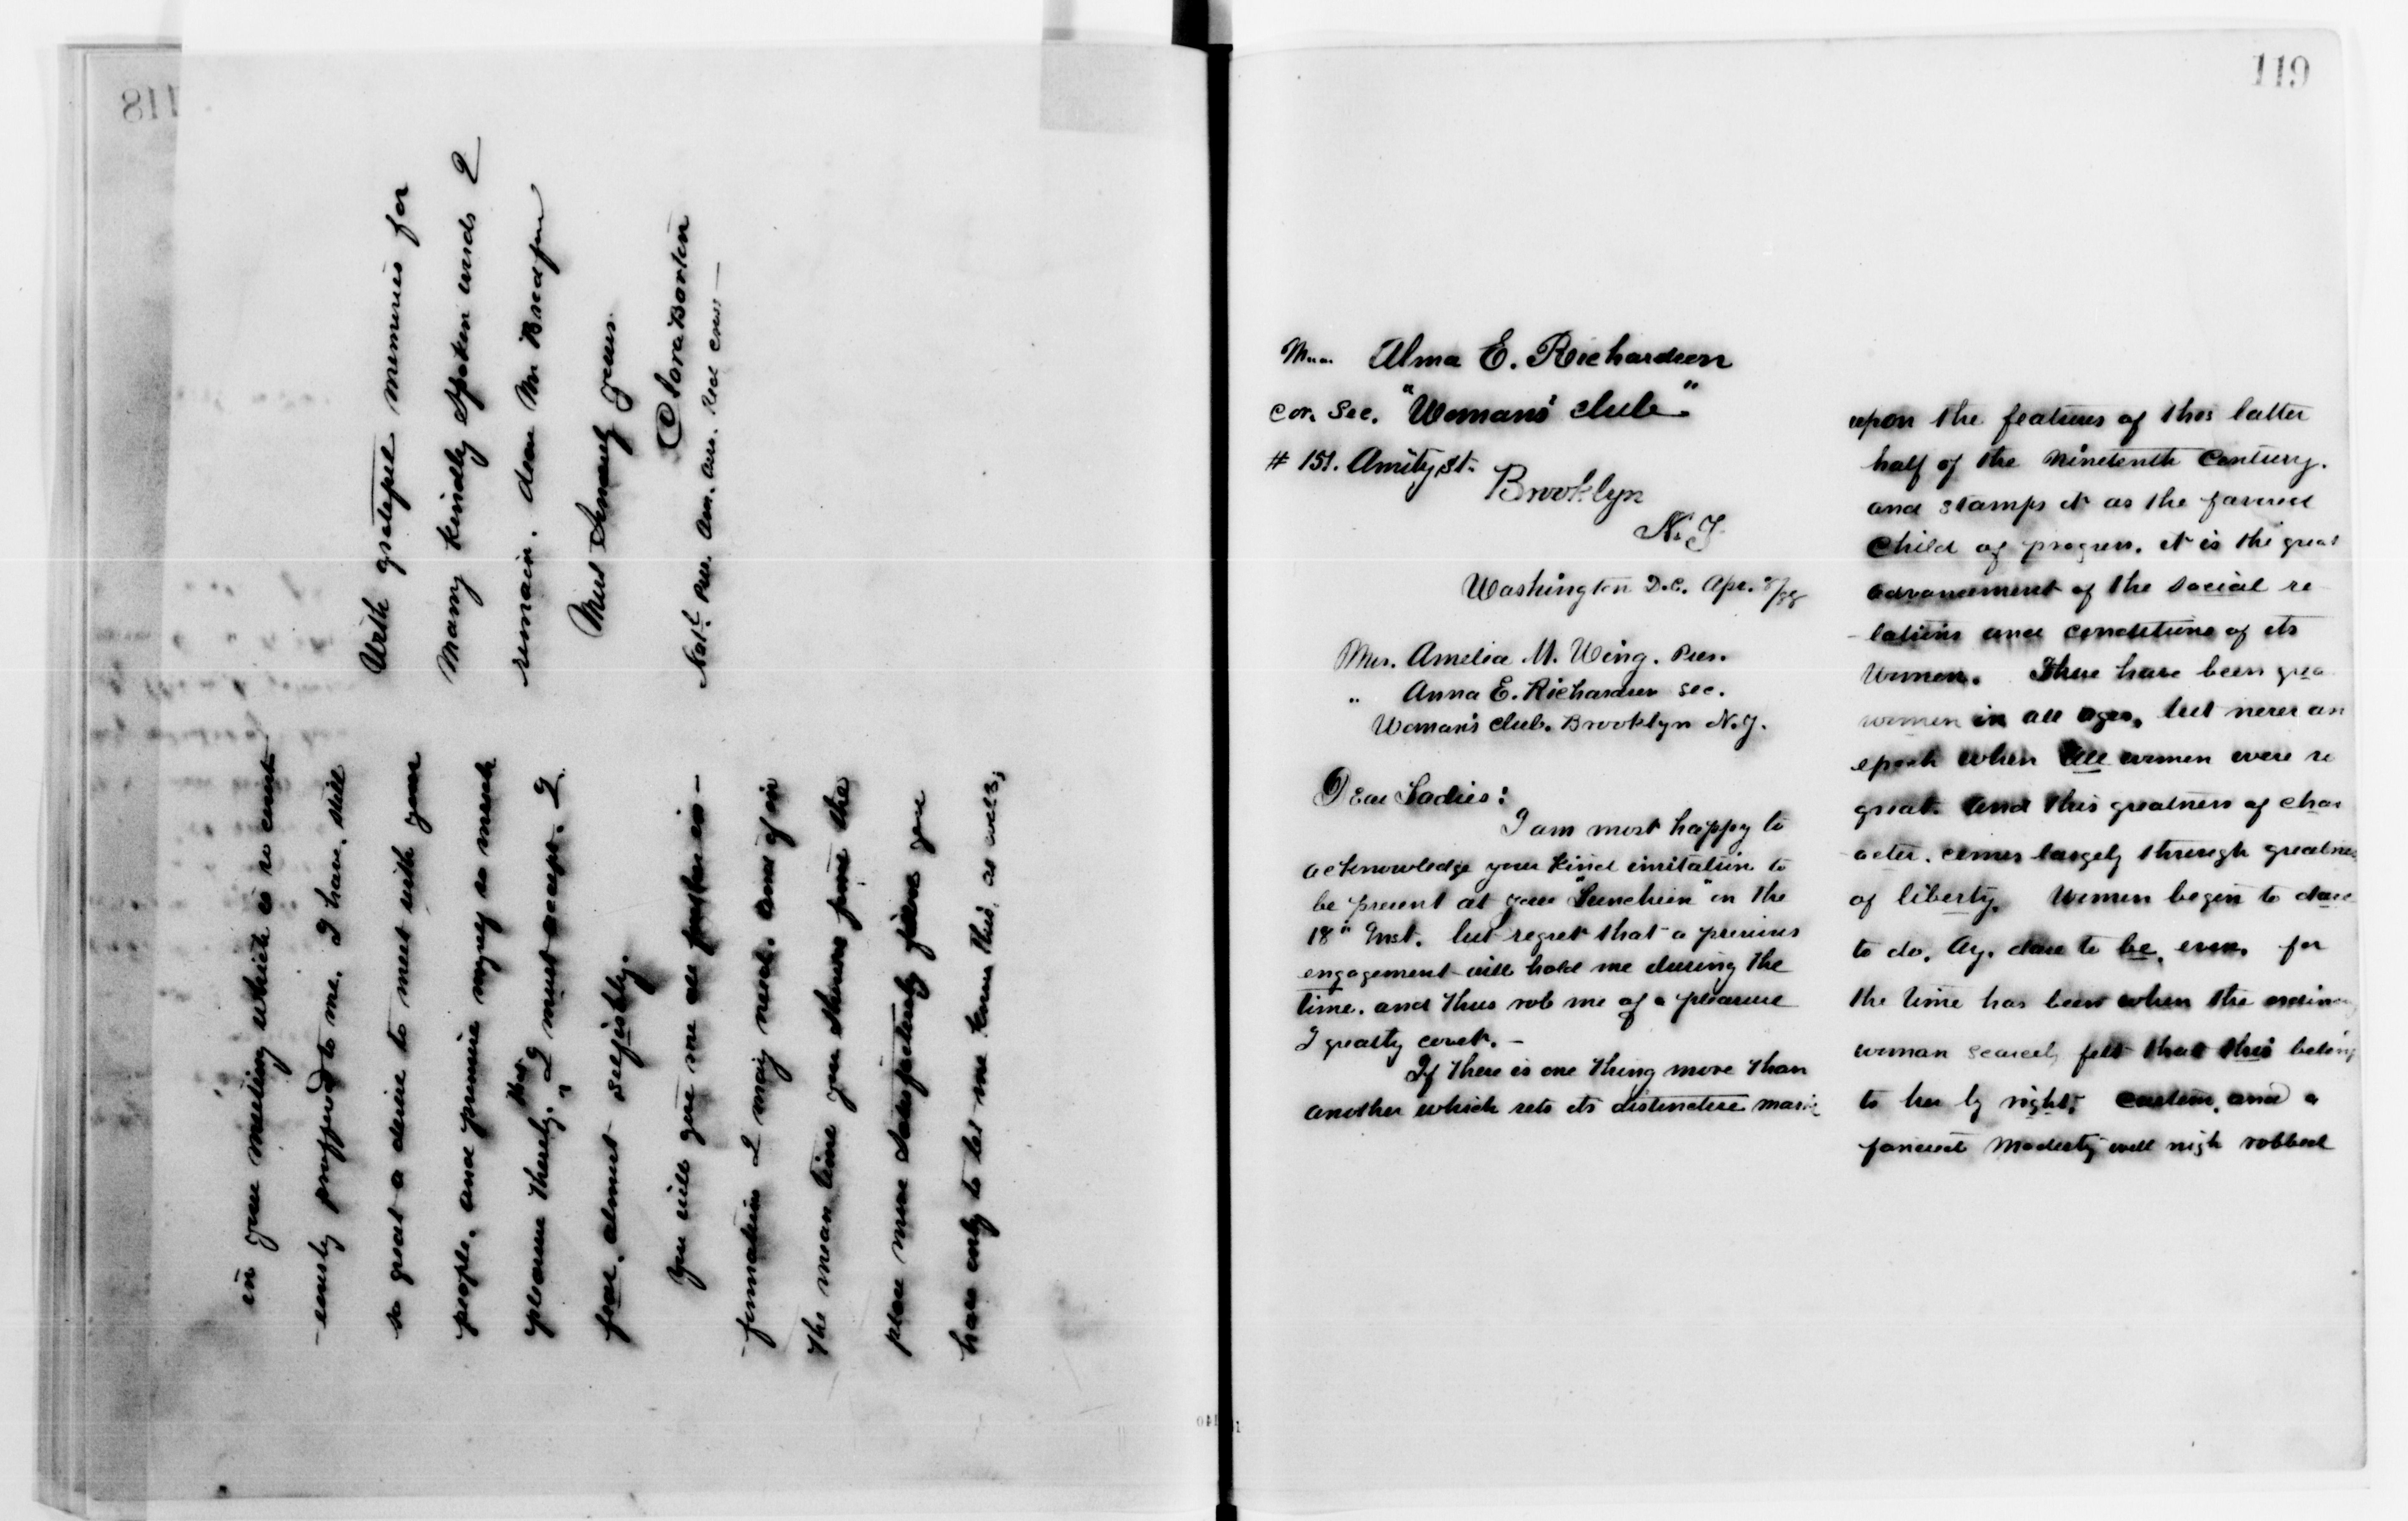 118
in your meeting which is so court-
-eously proffered to me. I have, still
so great a desire to meet with your
people, and promise myself so much
pleasure thereby, that I must accept. I
fear, almost selfishly.
You will give me all further in-
formation I may need. and if in
the mean time you should find the
place more satisfactorily filled you
have only to let me know this, as well;
With grateful memories for
Many kindly spoken words I
remain, dear Mr
Most Sincerely yours
Clara Barton
Natl. Pres. Am. Ass. Red Cross —
119
Mrs. Alma E. Richardson
Cor. Sec. "Woman's Club"
# 151. Amity St.
Brooklyn
N.Y.
Washington D.C. Apr.
Mrs. Amelia M. Wing. Pres.
" Anna E. Richardson Sec.
Woman's Club. Brooklyn N.Y.
Dear Ladies:
I am most happy to
acknowledge your kind invitation to
be present at your "Luncheon" on the
18" Inst. but regret that a previous
engagement will hold me during the
time. and thus rob me of a pleasure
I greatly covet. —
If there is one thing more than
another which sets its distinctive mark
upon the features of this latter
half of the Nineteenth Century.
and stamps it as the favored
Child of progress. it is the great
advancement of the social re-
-lations and conditions of its
Women. There have been grea
women in all ages, but never an
epoch when all women were so
great. And this greatness of char
-acter. comes largely through greatness
of liberty. Women begin to dare
to do, Ay. dare to be, even. for
the time has been when the ordinary
woman scarcely felt that this belong
to her by right; custom, and a
fancied Modesty well nigh robbed